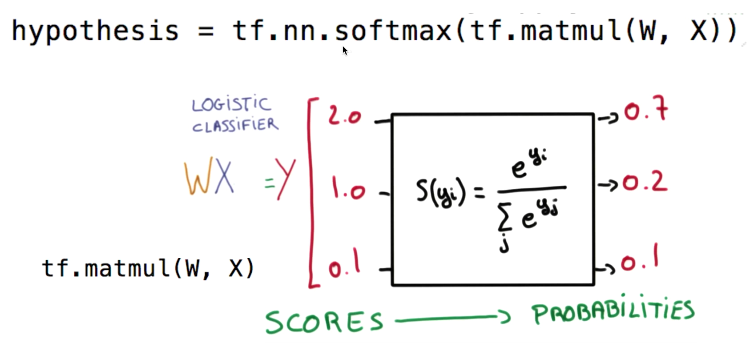 hypothesis = tf.nn.softmax(tf.matmul(W, X))
LOGISTIC
CLASSIFIER
WX = Y
2.0
1.0
0.1
S(yi) = e^yi / Σj e^yj
0.7
0.2
0.1
tf.matmul(W, X)
SCORES → PROBABILITIES